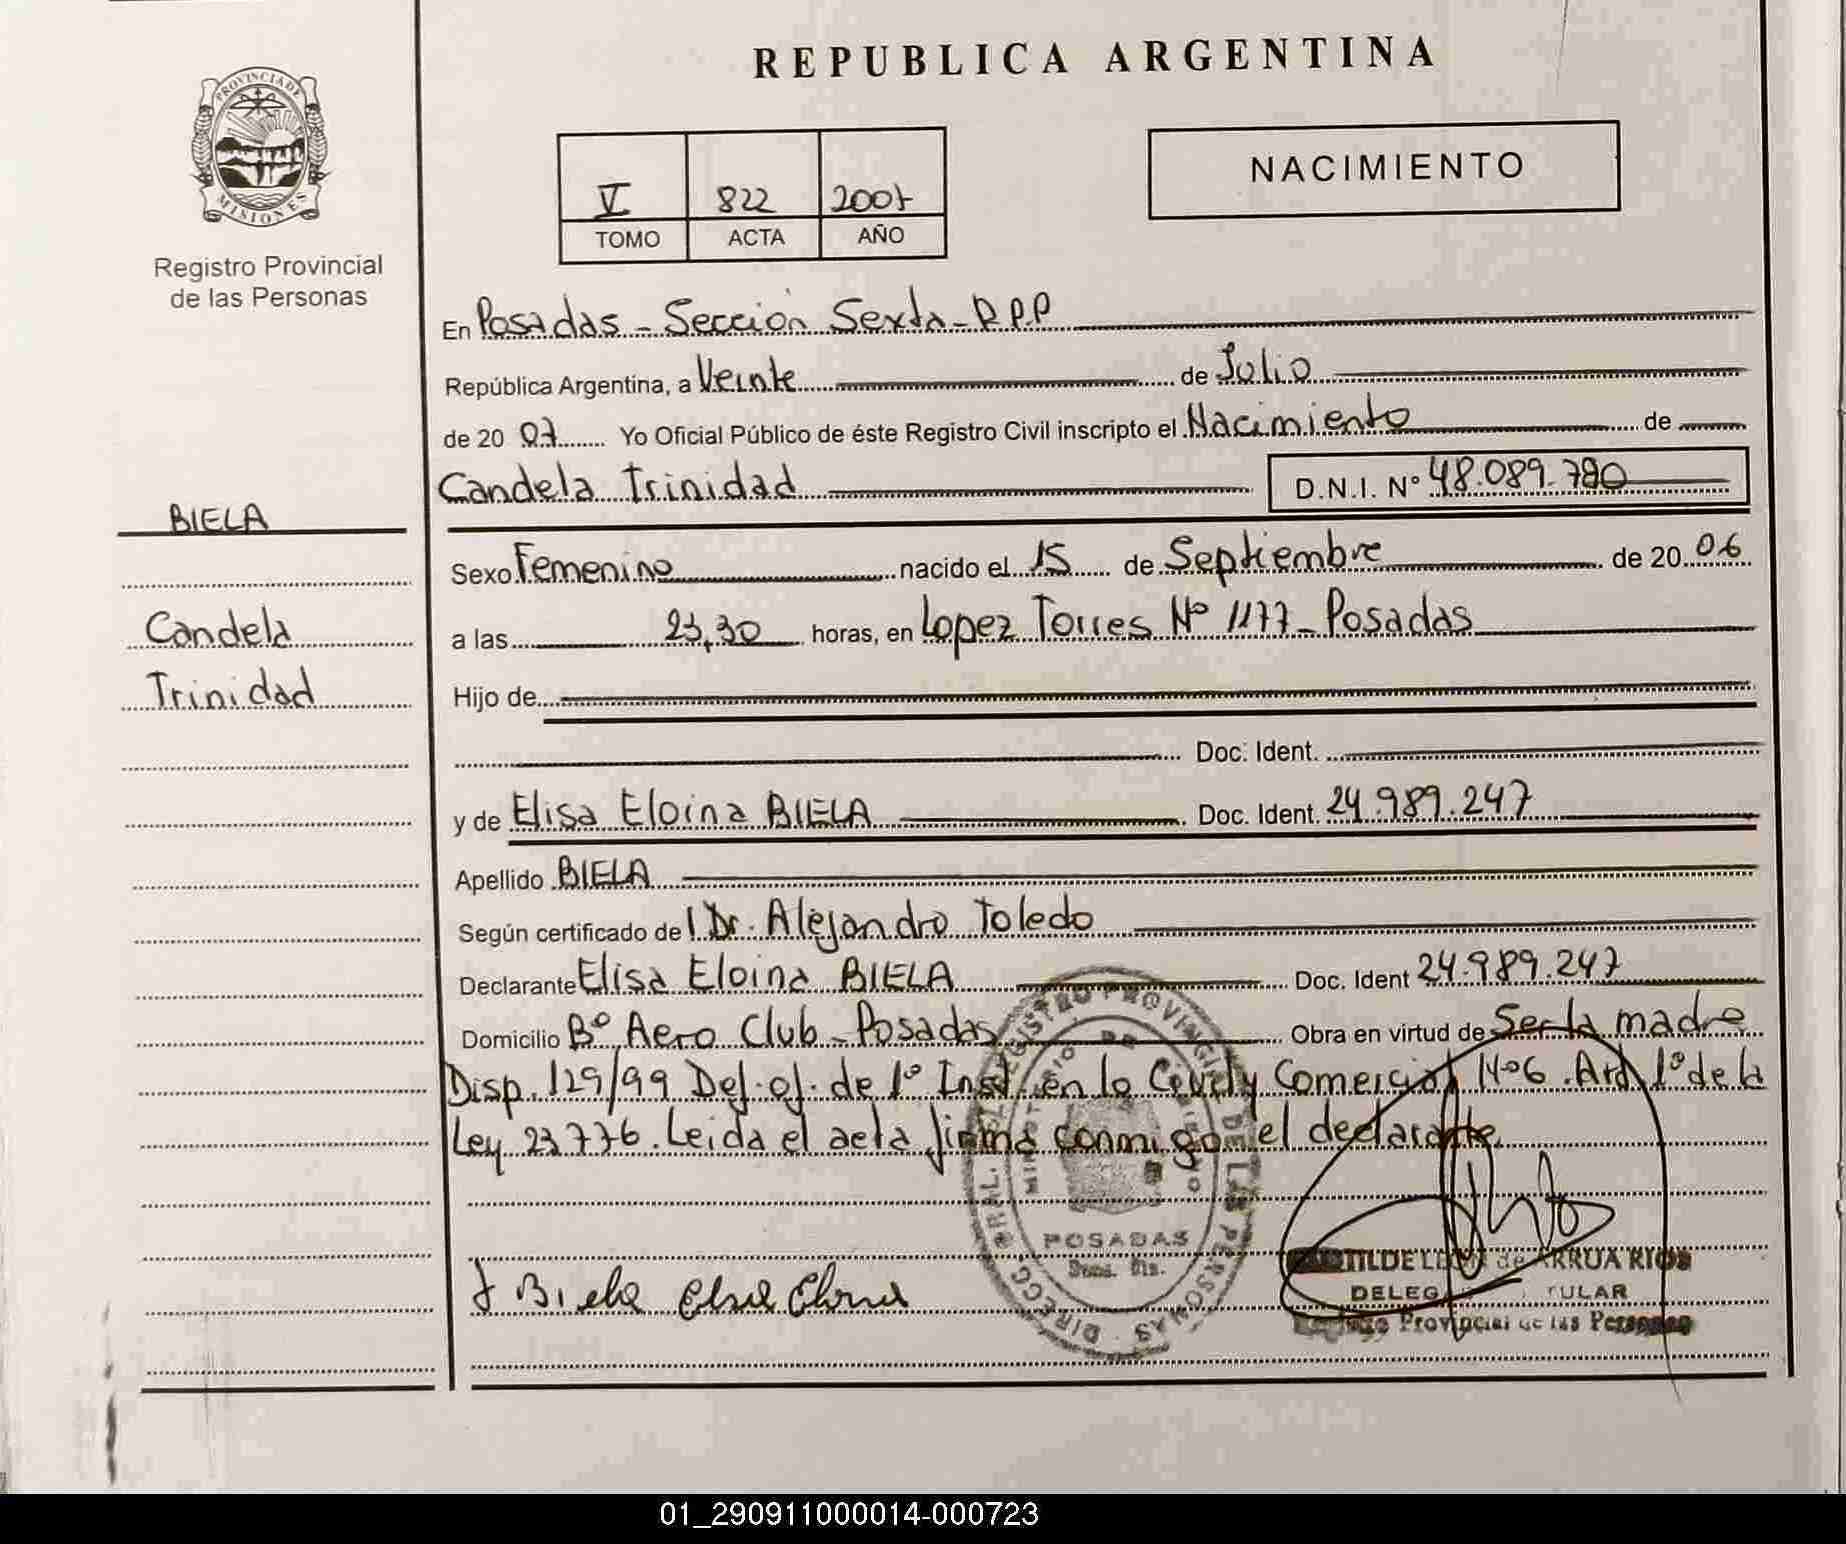 REPUBLICA ARGENTINA
PROVINCIA DE MISIONES
Registro Provincial
de las Personas
V 822 2007
TOMO ACTA AÑO
NACIMIENTO
En Posadas - Sección Sexta - R.P.P
República Argentina, a Veinte de Julio
de 20 07 Yo Oficial Público de éste Registro Civil inscripto el Nacimiento de
Candela Trinidad D.N.I. Nº 48.089.780
BIELA
Candela
Trinidad
Sexo Femenino nacido el 15 de Septiembre de 20 06
a las 23,30 horas, en Lopez Torres Nº 1177 - Posadas
Hijo de
Doc. Ident.
y de Elisa Eloina BIELA Doc. Ident. 24.989.247
Apellido BIELA
Según certificado del Dr. Alejandro Toledo
Declarante Elisa Eloina BIELA Doc. Ident 24.989.247
Domicilio Bº Aero Club - Posadas Obra en virtud de Ser la madre
Disp. 129/99 Def. of. de 1º Inst. en lo Civil y Comercial Nº6. Art 1º de la
Ley 23776. Leida el acta firma conmigo el declarante.
Biela Elisa Eloina
DIRECC. GRAL. DEL REGISTRO PROVINCIAL DE LAS PERSONAS
MINISTERIO DE GOBIERNO
POSADAS
de ARRUA RIOS
Provincial de las Personas
01_290911000014-000723